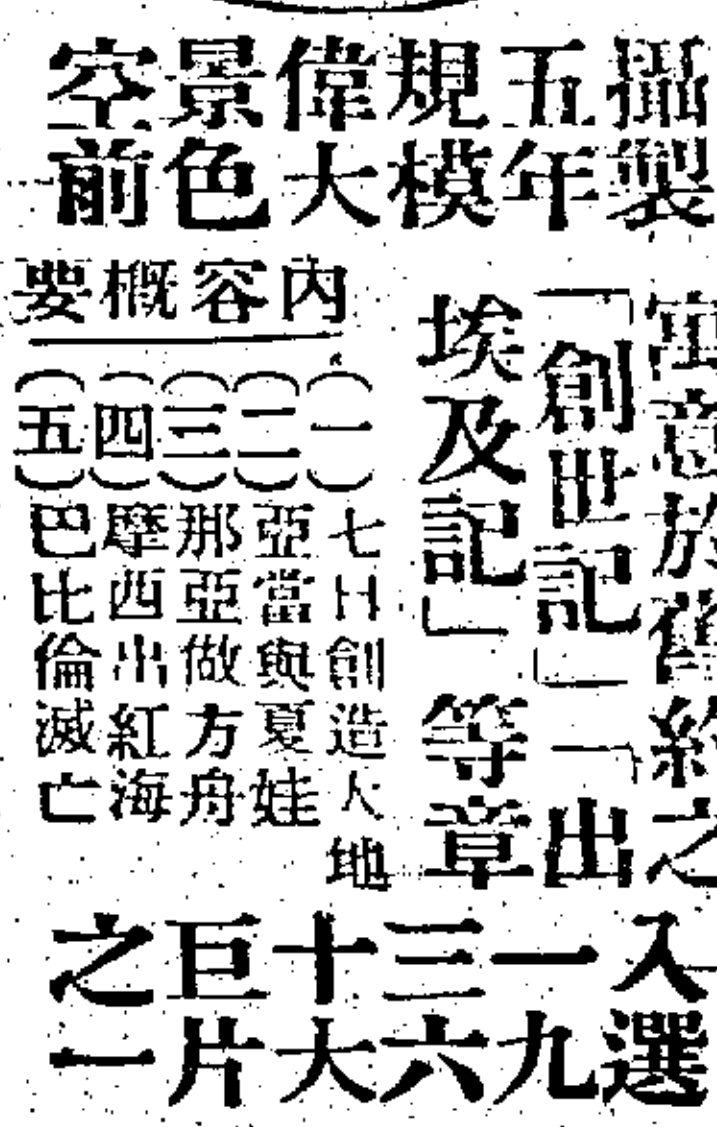 攝製
五年
規模
偉大
景色
空前
寓意於舊約之
「創世記」「出
埃及記」等章
內容概要
(一)七日創造天地
(二)亞當與夏娃
(三)那亞做方舟
(四)摩西出紅海
(五)巴比倫滅亡
入選
一九
三六
十大
巨片
之一